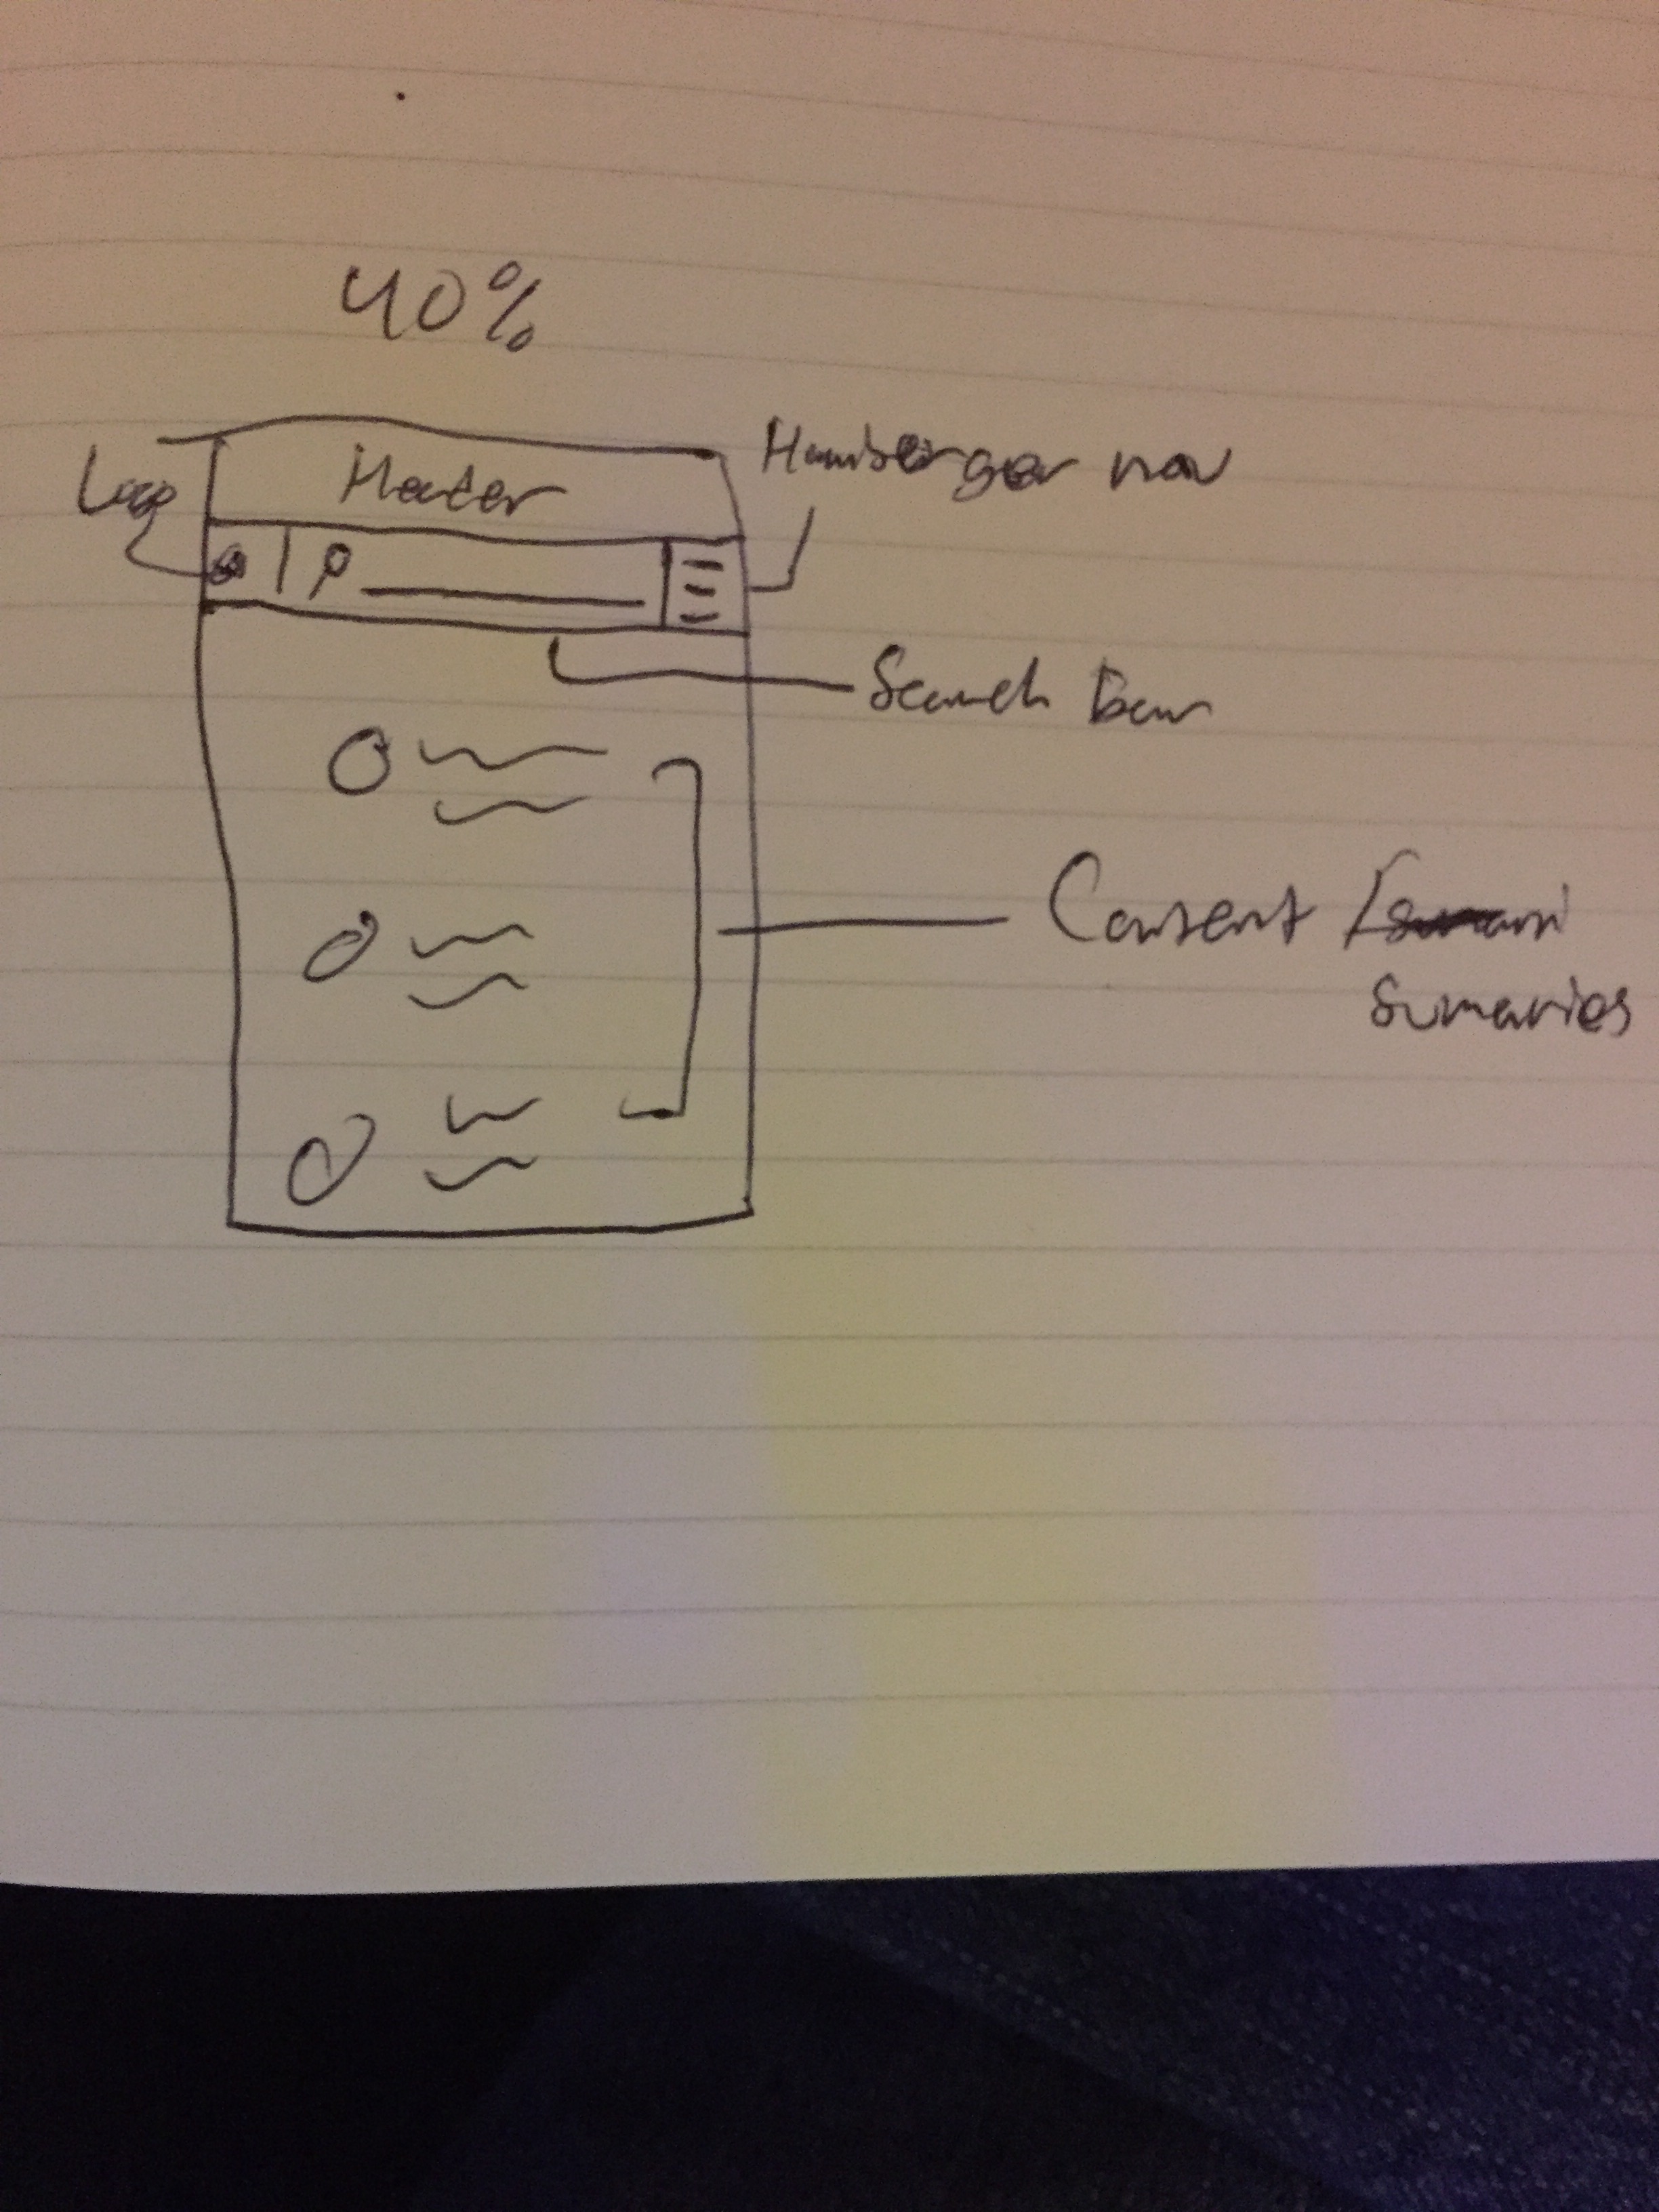 40%
Logo
Header
Hamberger nav
Search bar
Content
Sumaries